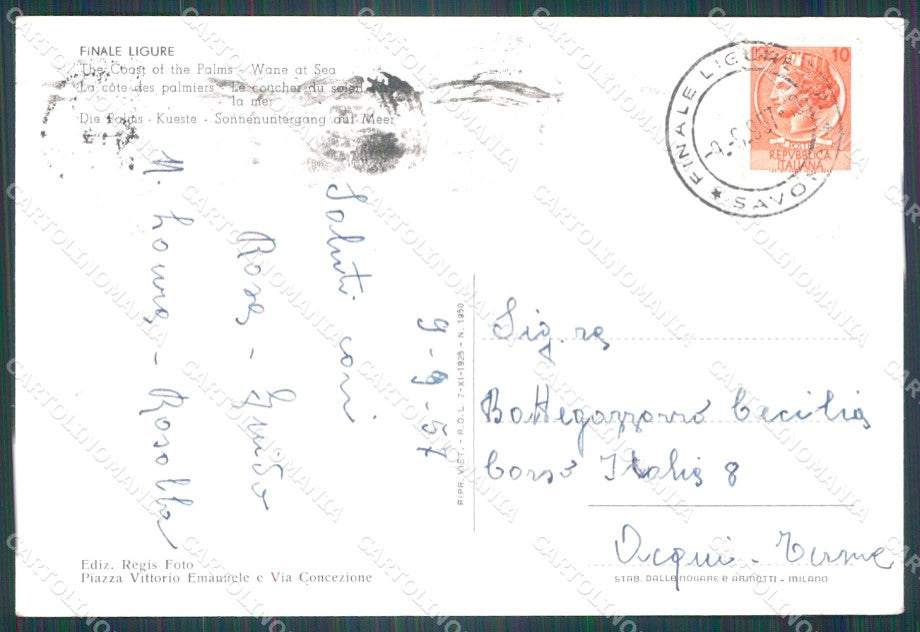 FINALE LIGURE
The Coast of the Palms - Wane at Sea
La côte des palmiers - Le coucher du soleil
la mer
Die Palms - Kueste - Sonnenuntergang auf Meer
10
REPVBBLICA
ITALIANA
FINALE LIGURE
SAVO
9-9-57
Saluti cari
Rosa - Guido
M. Laura - Rosalba
RIPR. VIET. - R.D.L. 7-XI-1925 - N. 1950
Sig.ra
Battegazzorre Cecilia
Corso Italia 8
Acqui - Terme
Ediz. Regis Foto
Piazza Vittorio Emanuele e Via Concezione
STAB. DALLE NOGARE E ARMETTI - MILANO
CARTOLINOMANIA